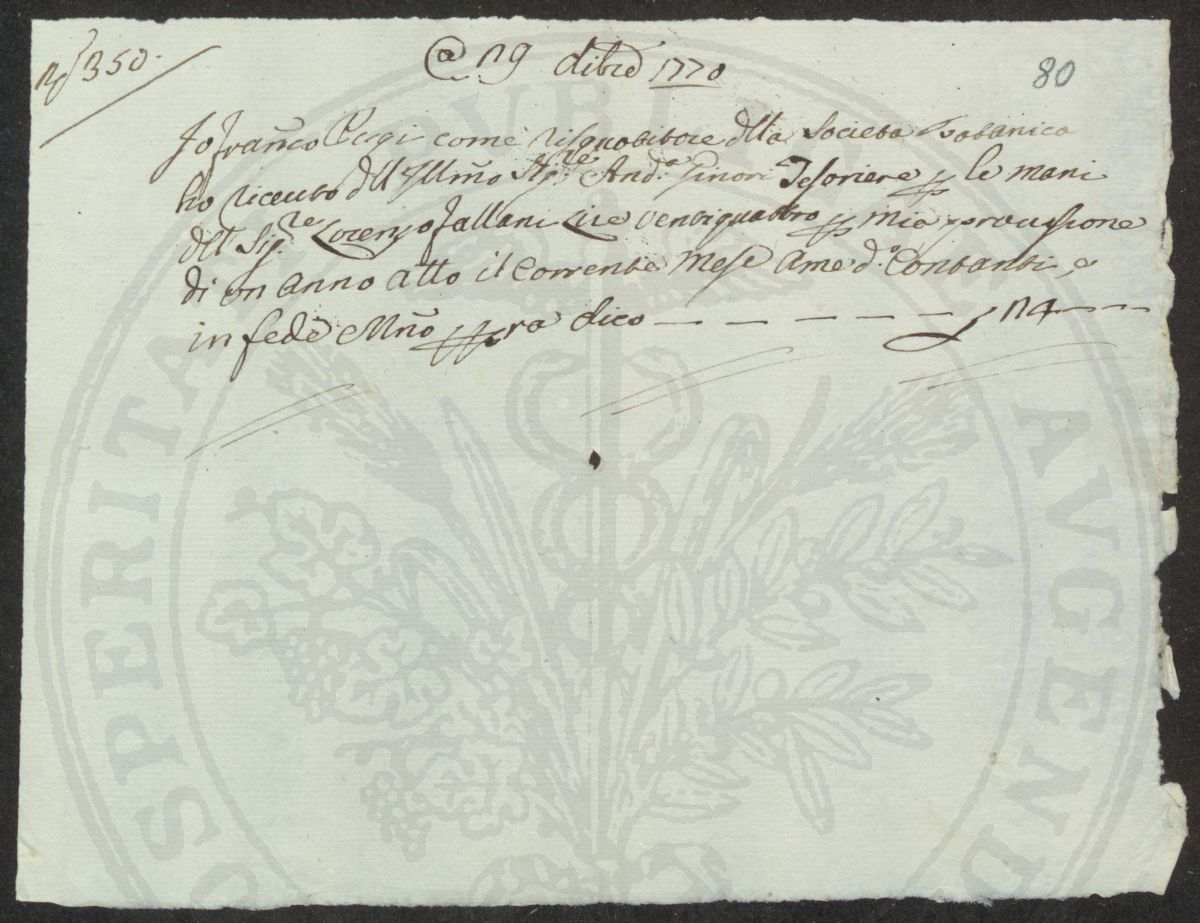 N° 350.
a 29 dibre 1770
80
Jo Franco Pergi come risquotitore dlla Societa Botanica
ho riceuto dll Jllmo Sigre Anda Ginori Tesoriere p le mani
dll Sigre Lorenzo Fallani Lire ventiquattro p mia provisione
di un anno atto il Corrente Mese Ame do Contanti, e
in fede Mno ppra dico — — — — — — 24 — —
PROSPERITATI PUBLICAE AUGENDAE